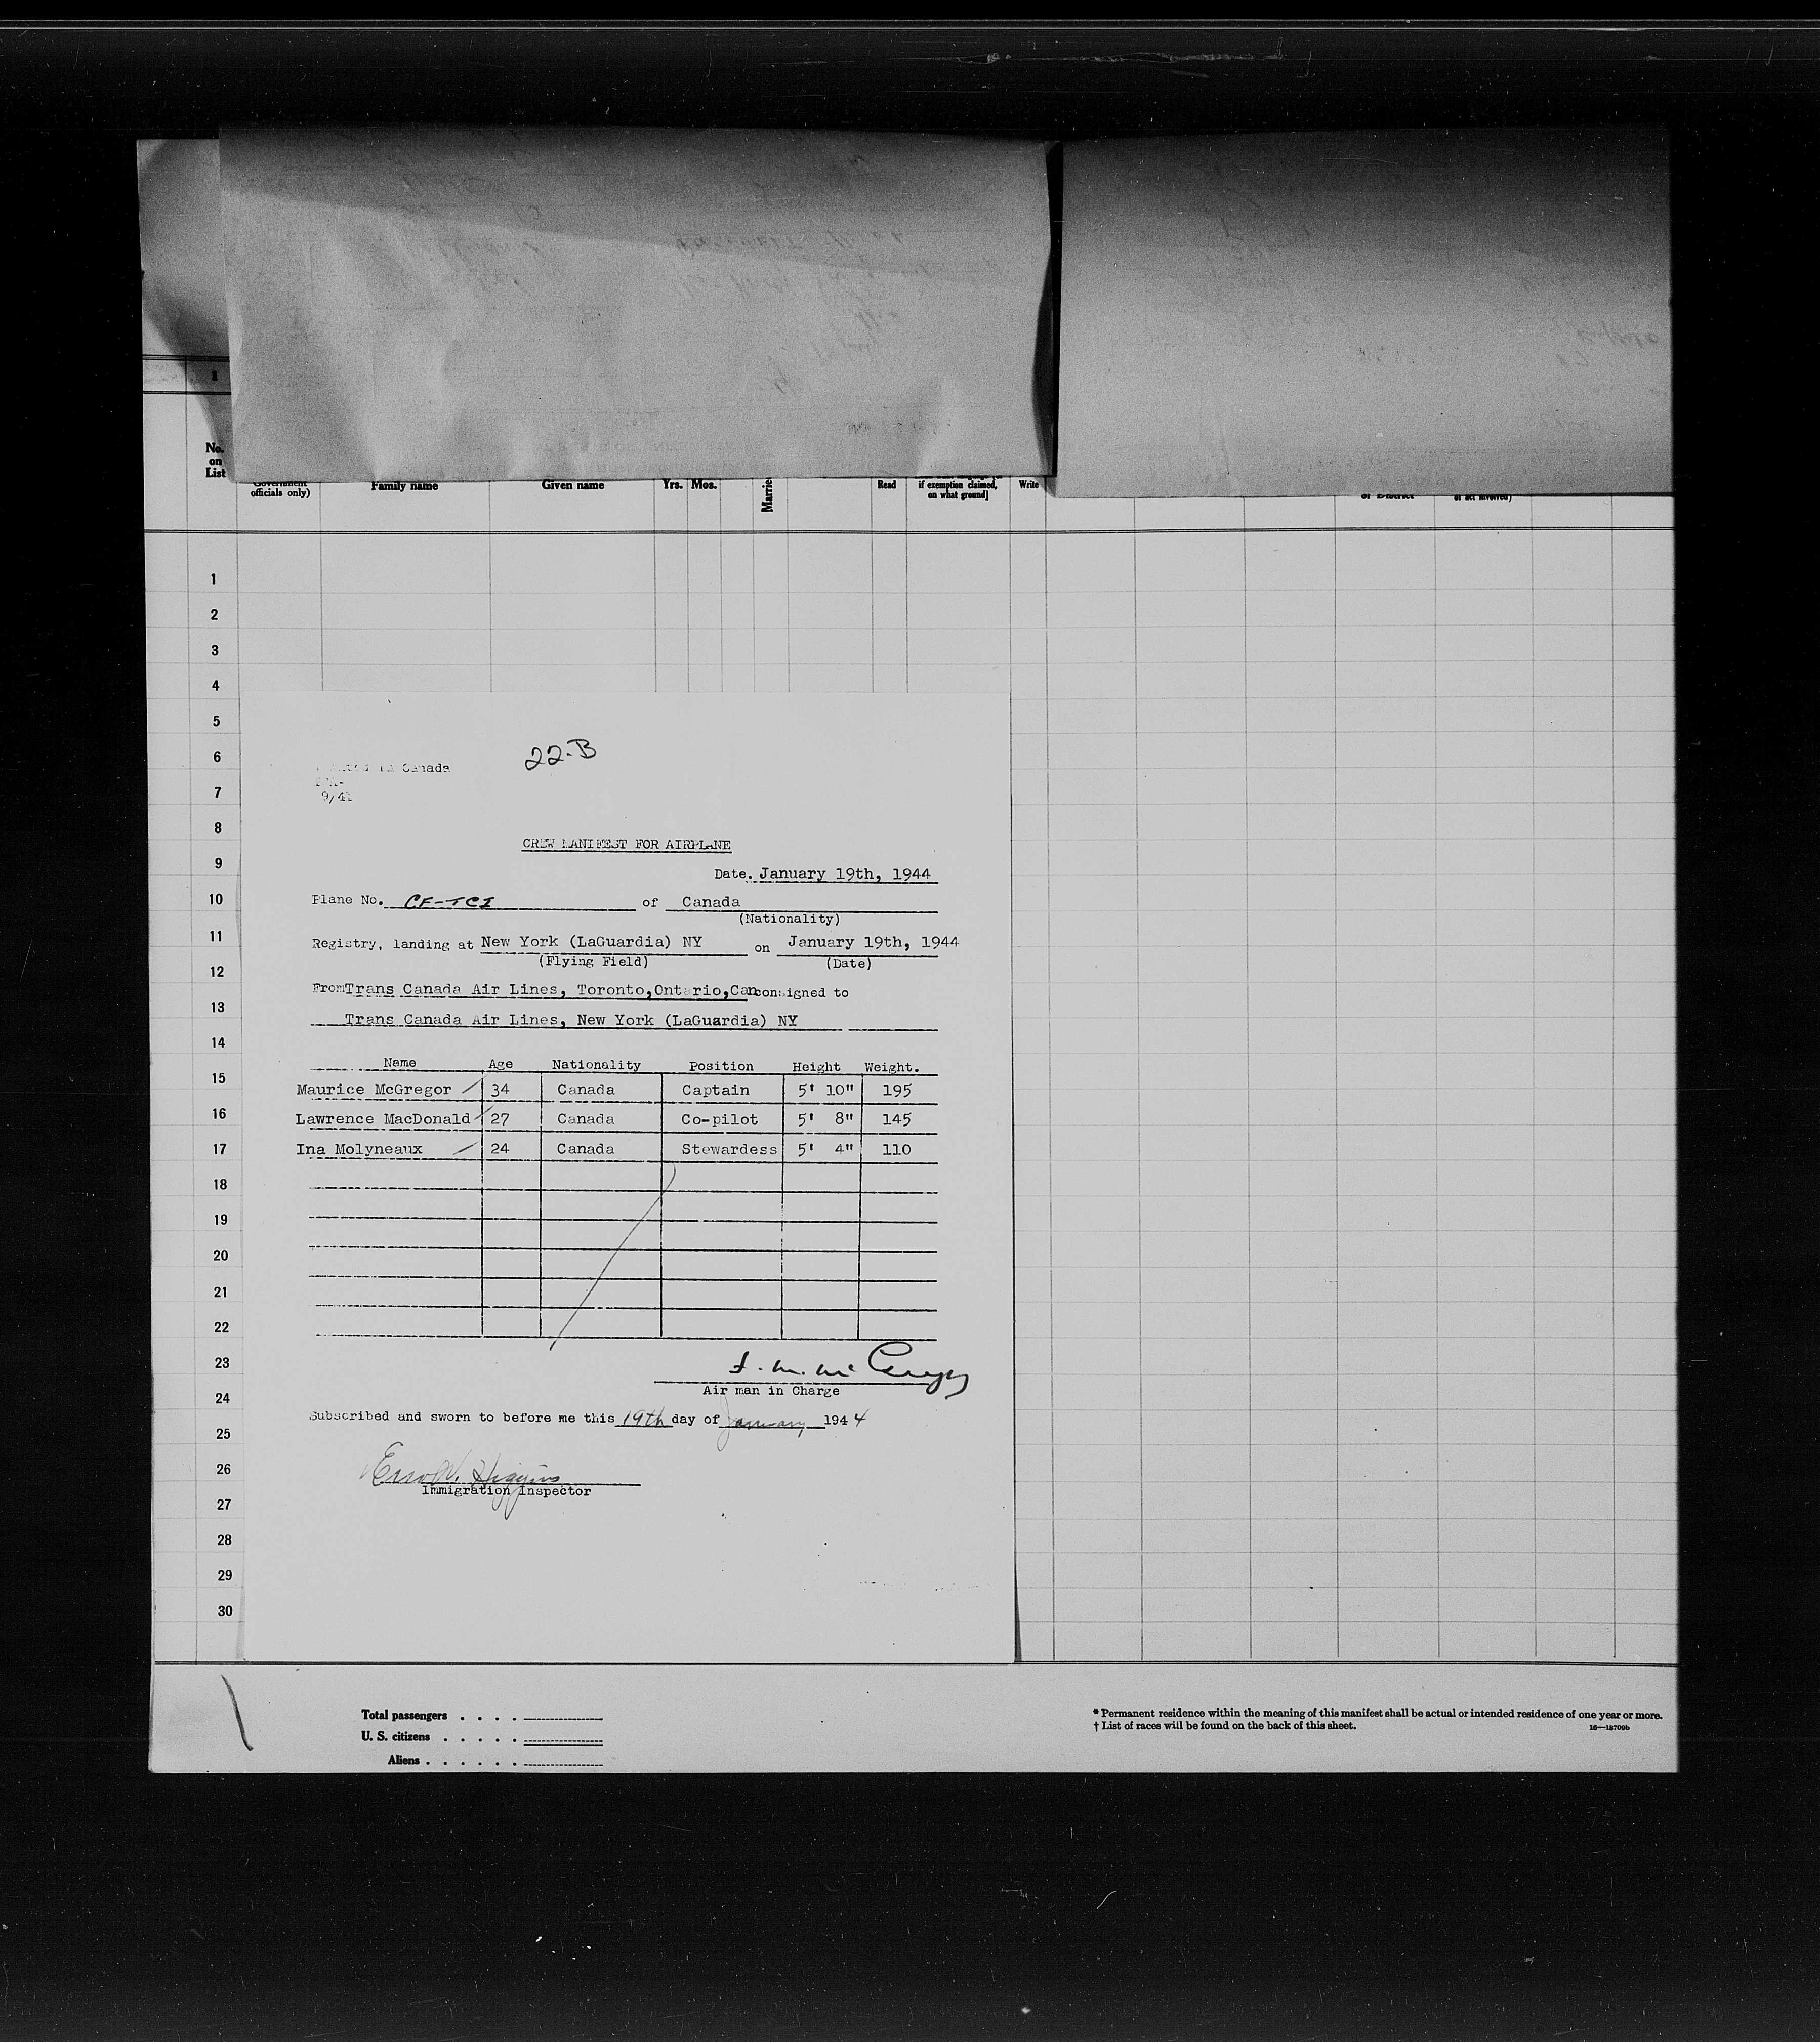 1
No.
on
List
officials only)
Family name
Given name
Yrs. Mos.
Married
Read
if exemption claimed,
on what ground]
Write
of District
of act involved)
1
2
3
4
5
6
7
8
9
10
11
12
13
14
15
16
17
18
19
20
21
22
23
24
25
26
27
28
29
30
22-B
in Canada
9/41
CREW MANIFEST FOR AIRPLANE
Date. January 19th, 1944
Plane No. CF-TCI of Canada
(Nationality)
Registry, landing at New York (LaGuardia) NY on January 19th, 1944
(Flying Field) (Date)
From Trans Canada Air Lines, Toronto,Ontario,Can consigned to
Trans Canada Air Lines, New York (LaGuardia) NY
Name Age Nationality Position Height Weight.
Maurice McGregor 34 Canada Captain 5' 10" 195
Lawrence MacDonald 27 Canada Co-pilot 5' 8" 145
Ina Molyneaux 24 Canada Stewardess 5' 4" 110
Air man in Charge
Subscribed and sworn to before me this 19th day of January 1944
Higgins
Immigration Inspector
Total passengers . . . .
U. S. citizens . . . . .
Aliens . . . . . .
* Permanent residence within the meaning of this manifest shall be actual or intended residence of one year or more.
† List of races will be found on the back of this sheet. 16—18709b